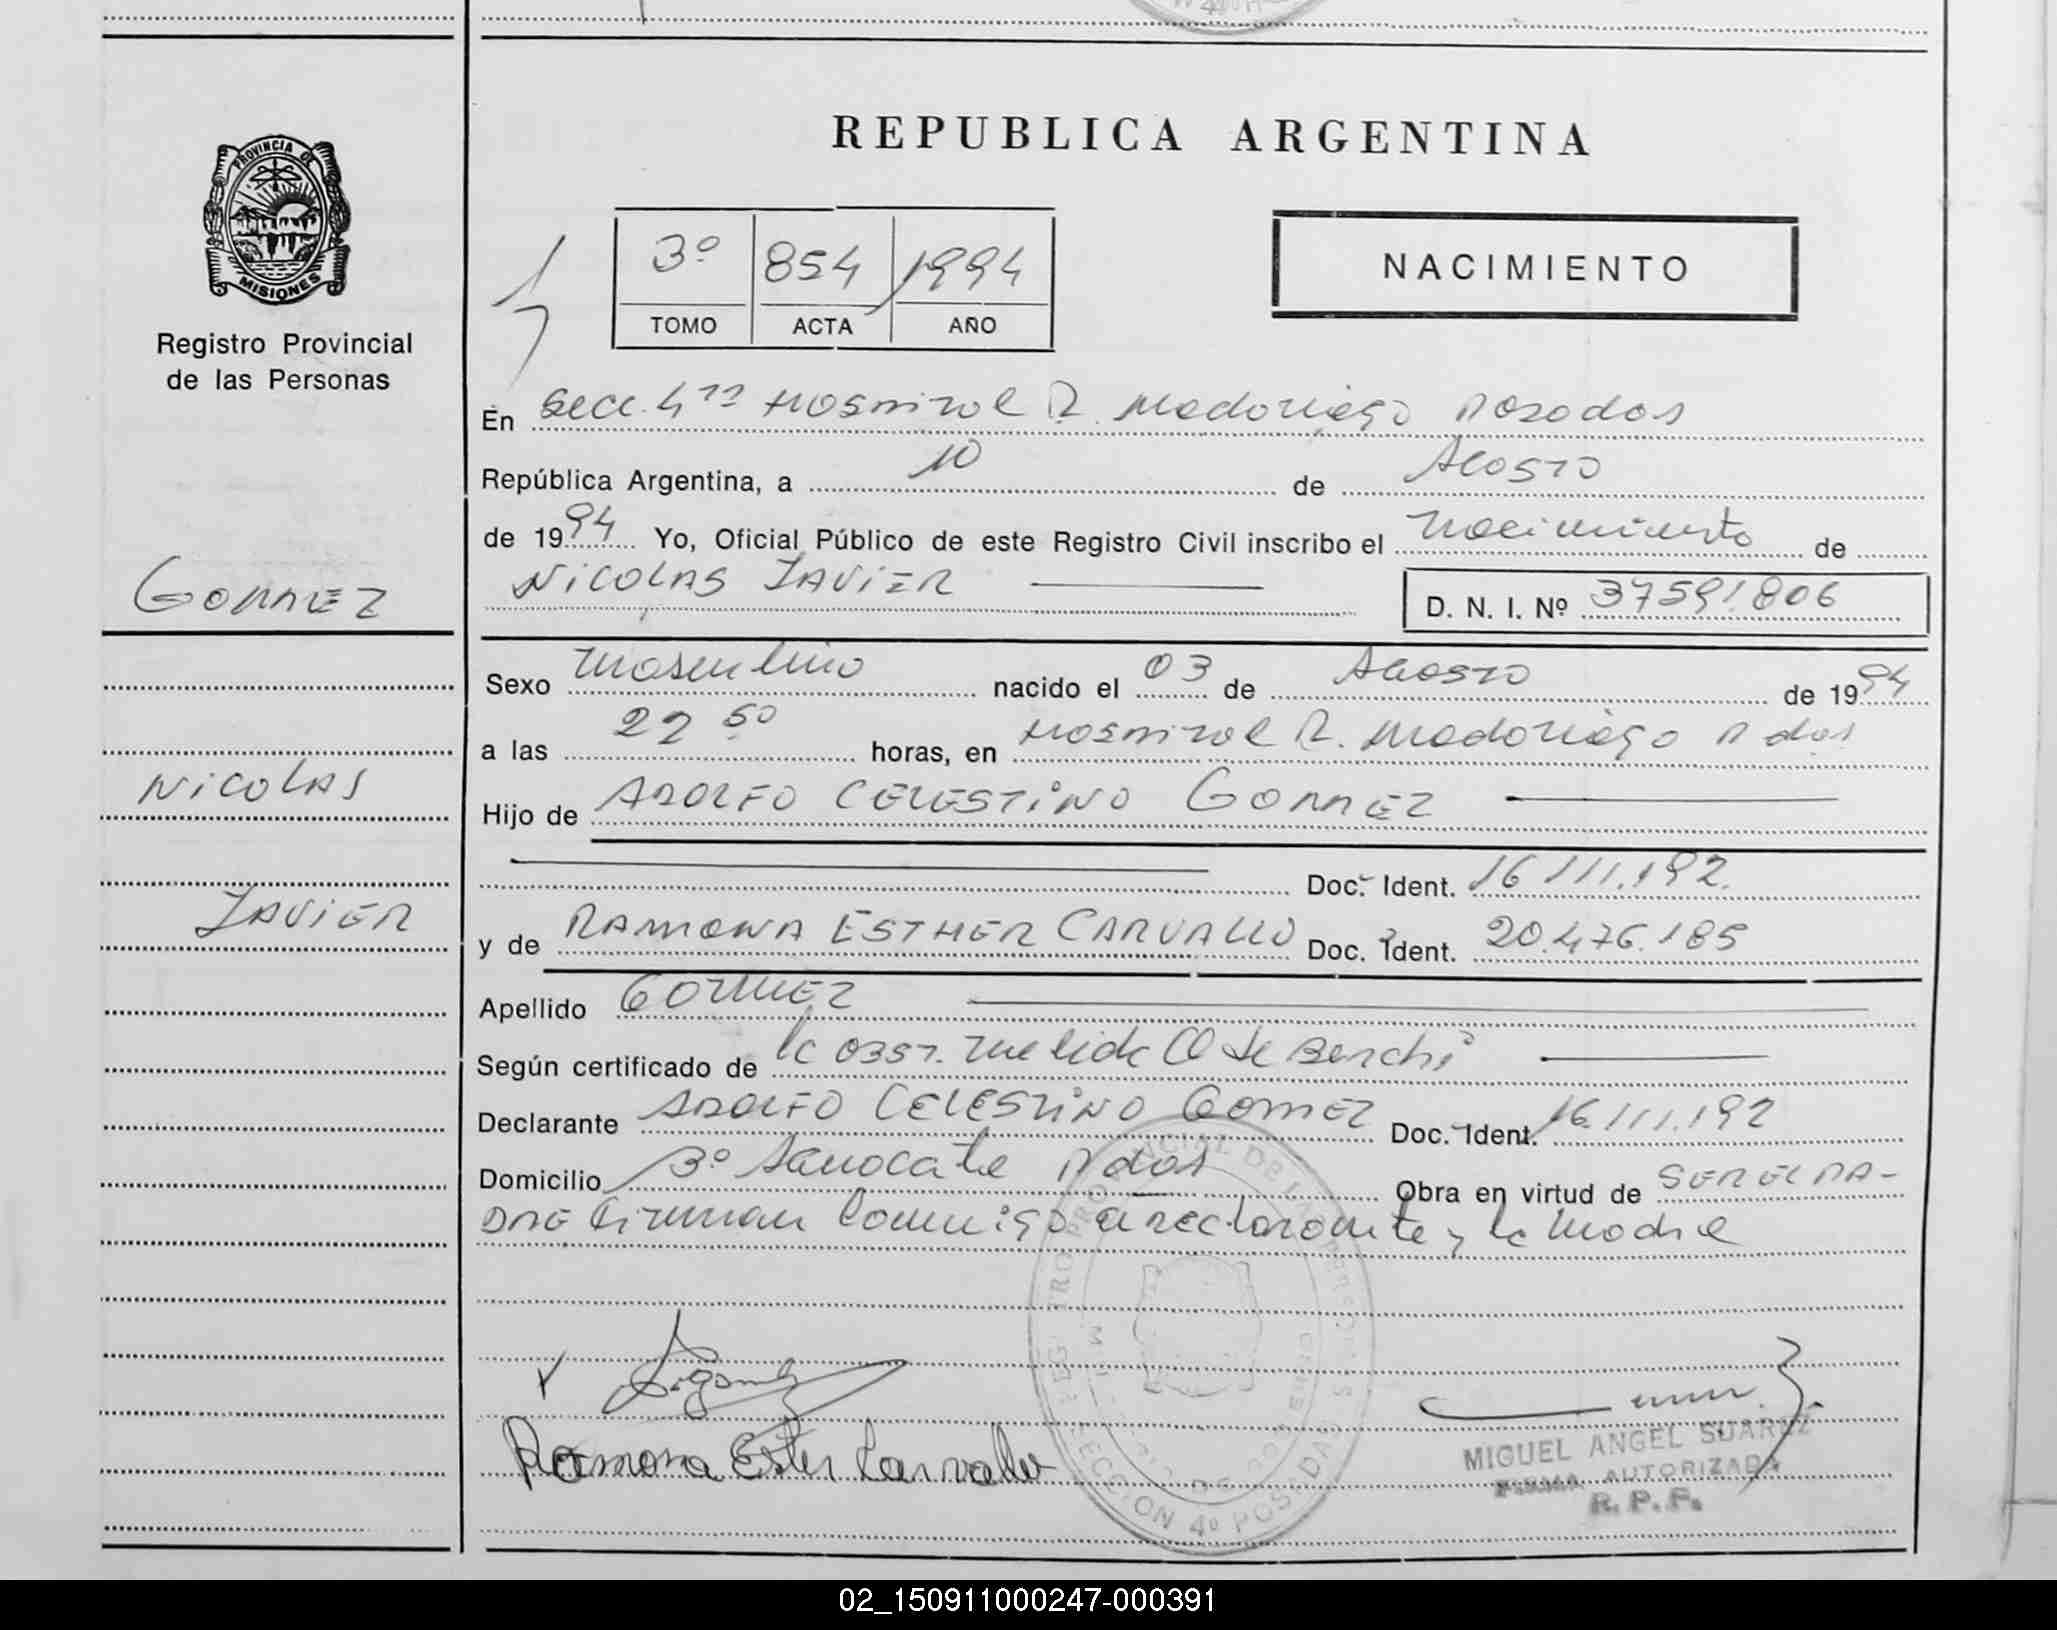 REPUBLICA ARGENTINA
PROVINCIA DE
MISIONES
Registro Provincial
de las Personas
3º 854 1994
TOMO ACTA AÑO
NACIMIENTO
En Secc. 4ta Hospital R. Madariaga Posadas
República Argentina, a 10 de Agosto
de 1994 Yo, Oficial Público de este Registro Civil inscribo el nacimiento de
NICOLAS JAVIER D. N. I. Nº 37591806
GOMEZ
NICOLAS
JAVIER
Sexo masculino nacido el 03 de Agosto de 1994
a las 22 50 horas, en Hospital R. Madariaga Pdas
Hijo de ADOLFO CELESTINO GOMEZ
Doc. Ident. 16.111.192.
y de RAMONA ESTHER CARVALLO Doc. Ident. 20.476.185
Apellido GOMEZ
Según certificado de la Obst. Nelida de
Declarante ADOLFO CELESTINO GOMEZ Doc. Ident. 16.111.192
Domicilio Pdas Obra en virtud de SER EL PA-
DRE Firman conmigo declarante y la Madre
Ramona Ester Carvallo
MIGUEL ANGEL SUAREZ
FIRMA AUTORIZADA
R. P. P.
SECCION 4º POSADAS
02_150911000247-000391